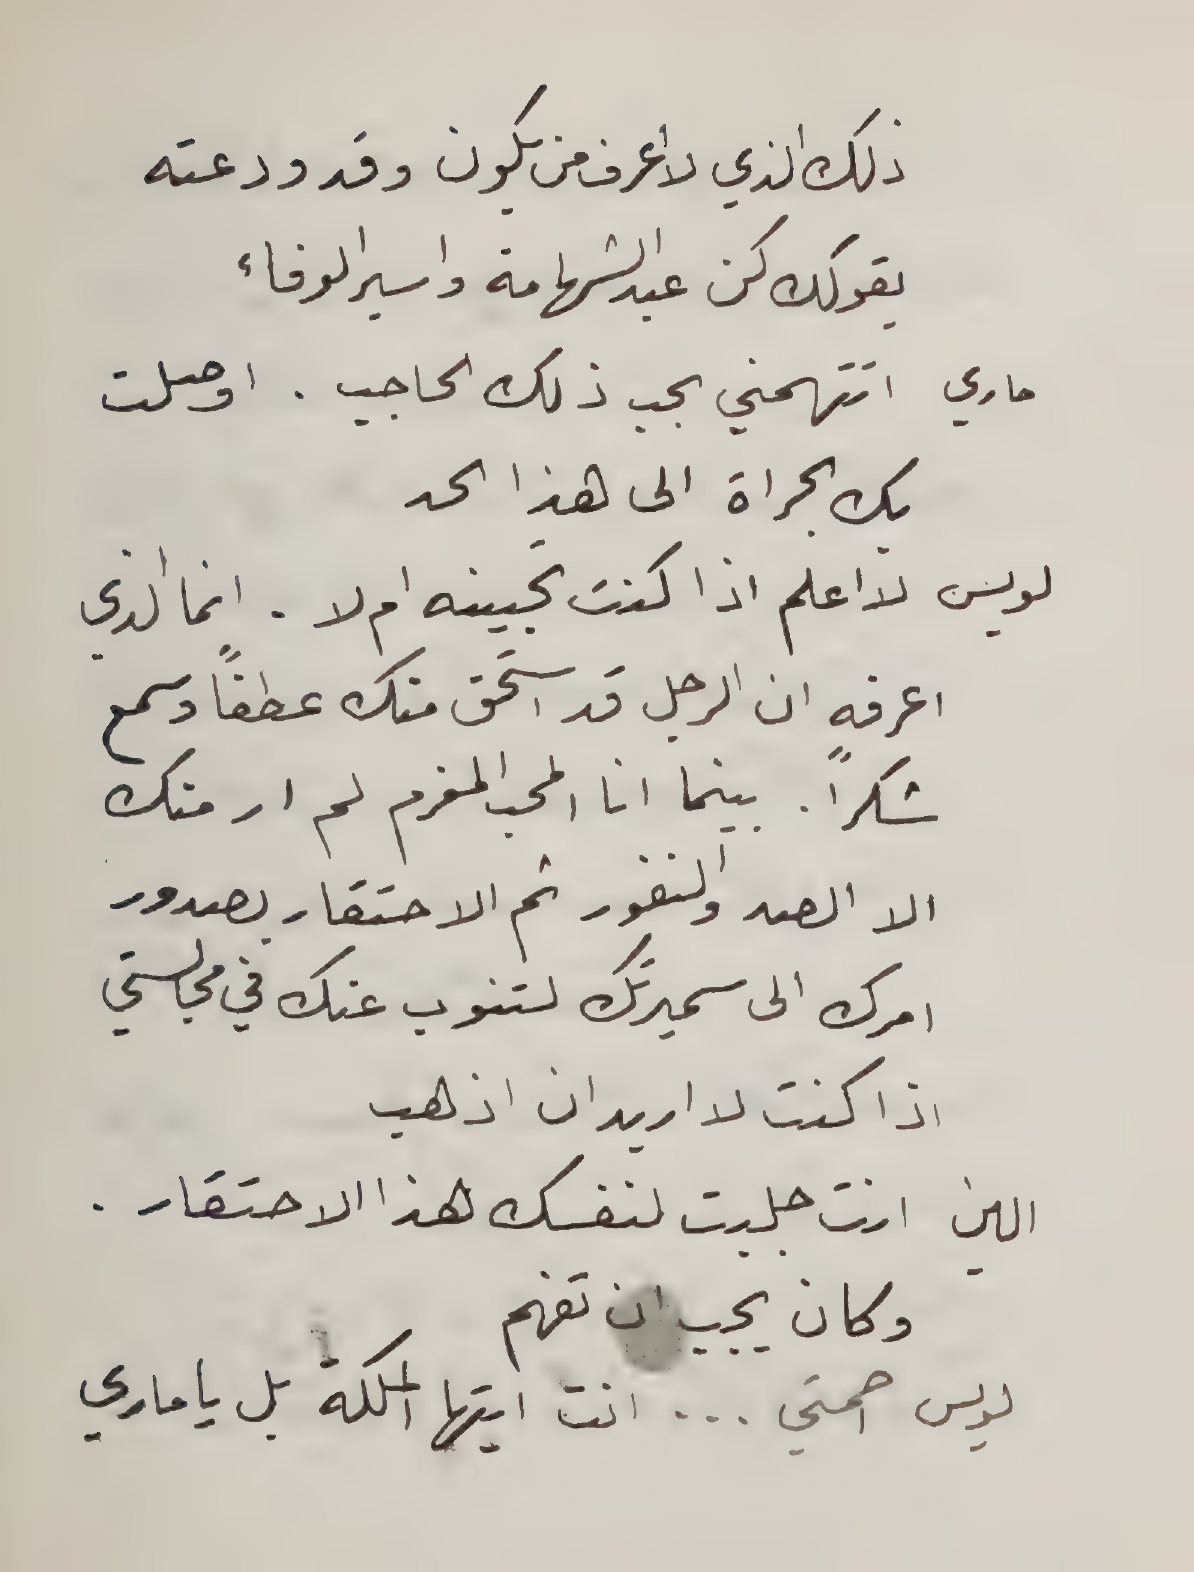 ذلك الذي لا اعرف من يكون وقد ودعته
بقولك كن عبد الشهامة واسير الوفاء
ماري اتتهمني بحب ذلك الحاجب . اوصلت
بك الجراة الى هذا الحد
لويس لا اعلم اذا كنت تحبينه ام لا . انما الذي
اعرفه ان الرجل قد استحق منك عطفاً وسمع
شكراً . بينما انا المحب المغرم لم ار منك
الا الصد والنفور ثم الاحتقار بصدور
امرك الى سميرتك لتنوب عنك في مجالستي
اذا كنت لا اريد ان اذهب
الين انت جلبت لنفسك هذا الاحتقار .
وكان يجب ان تفهم
لويس اصمتي ... انت ايتها الملكة بل يا ماري